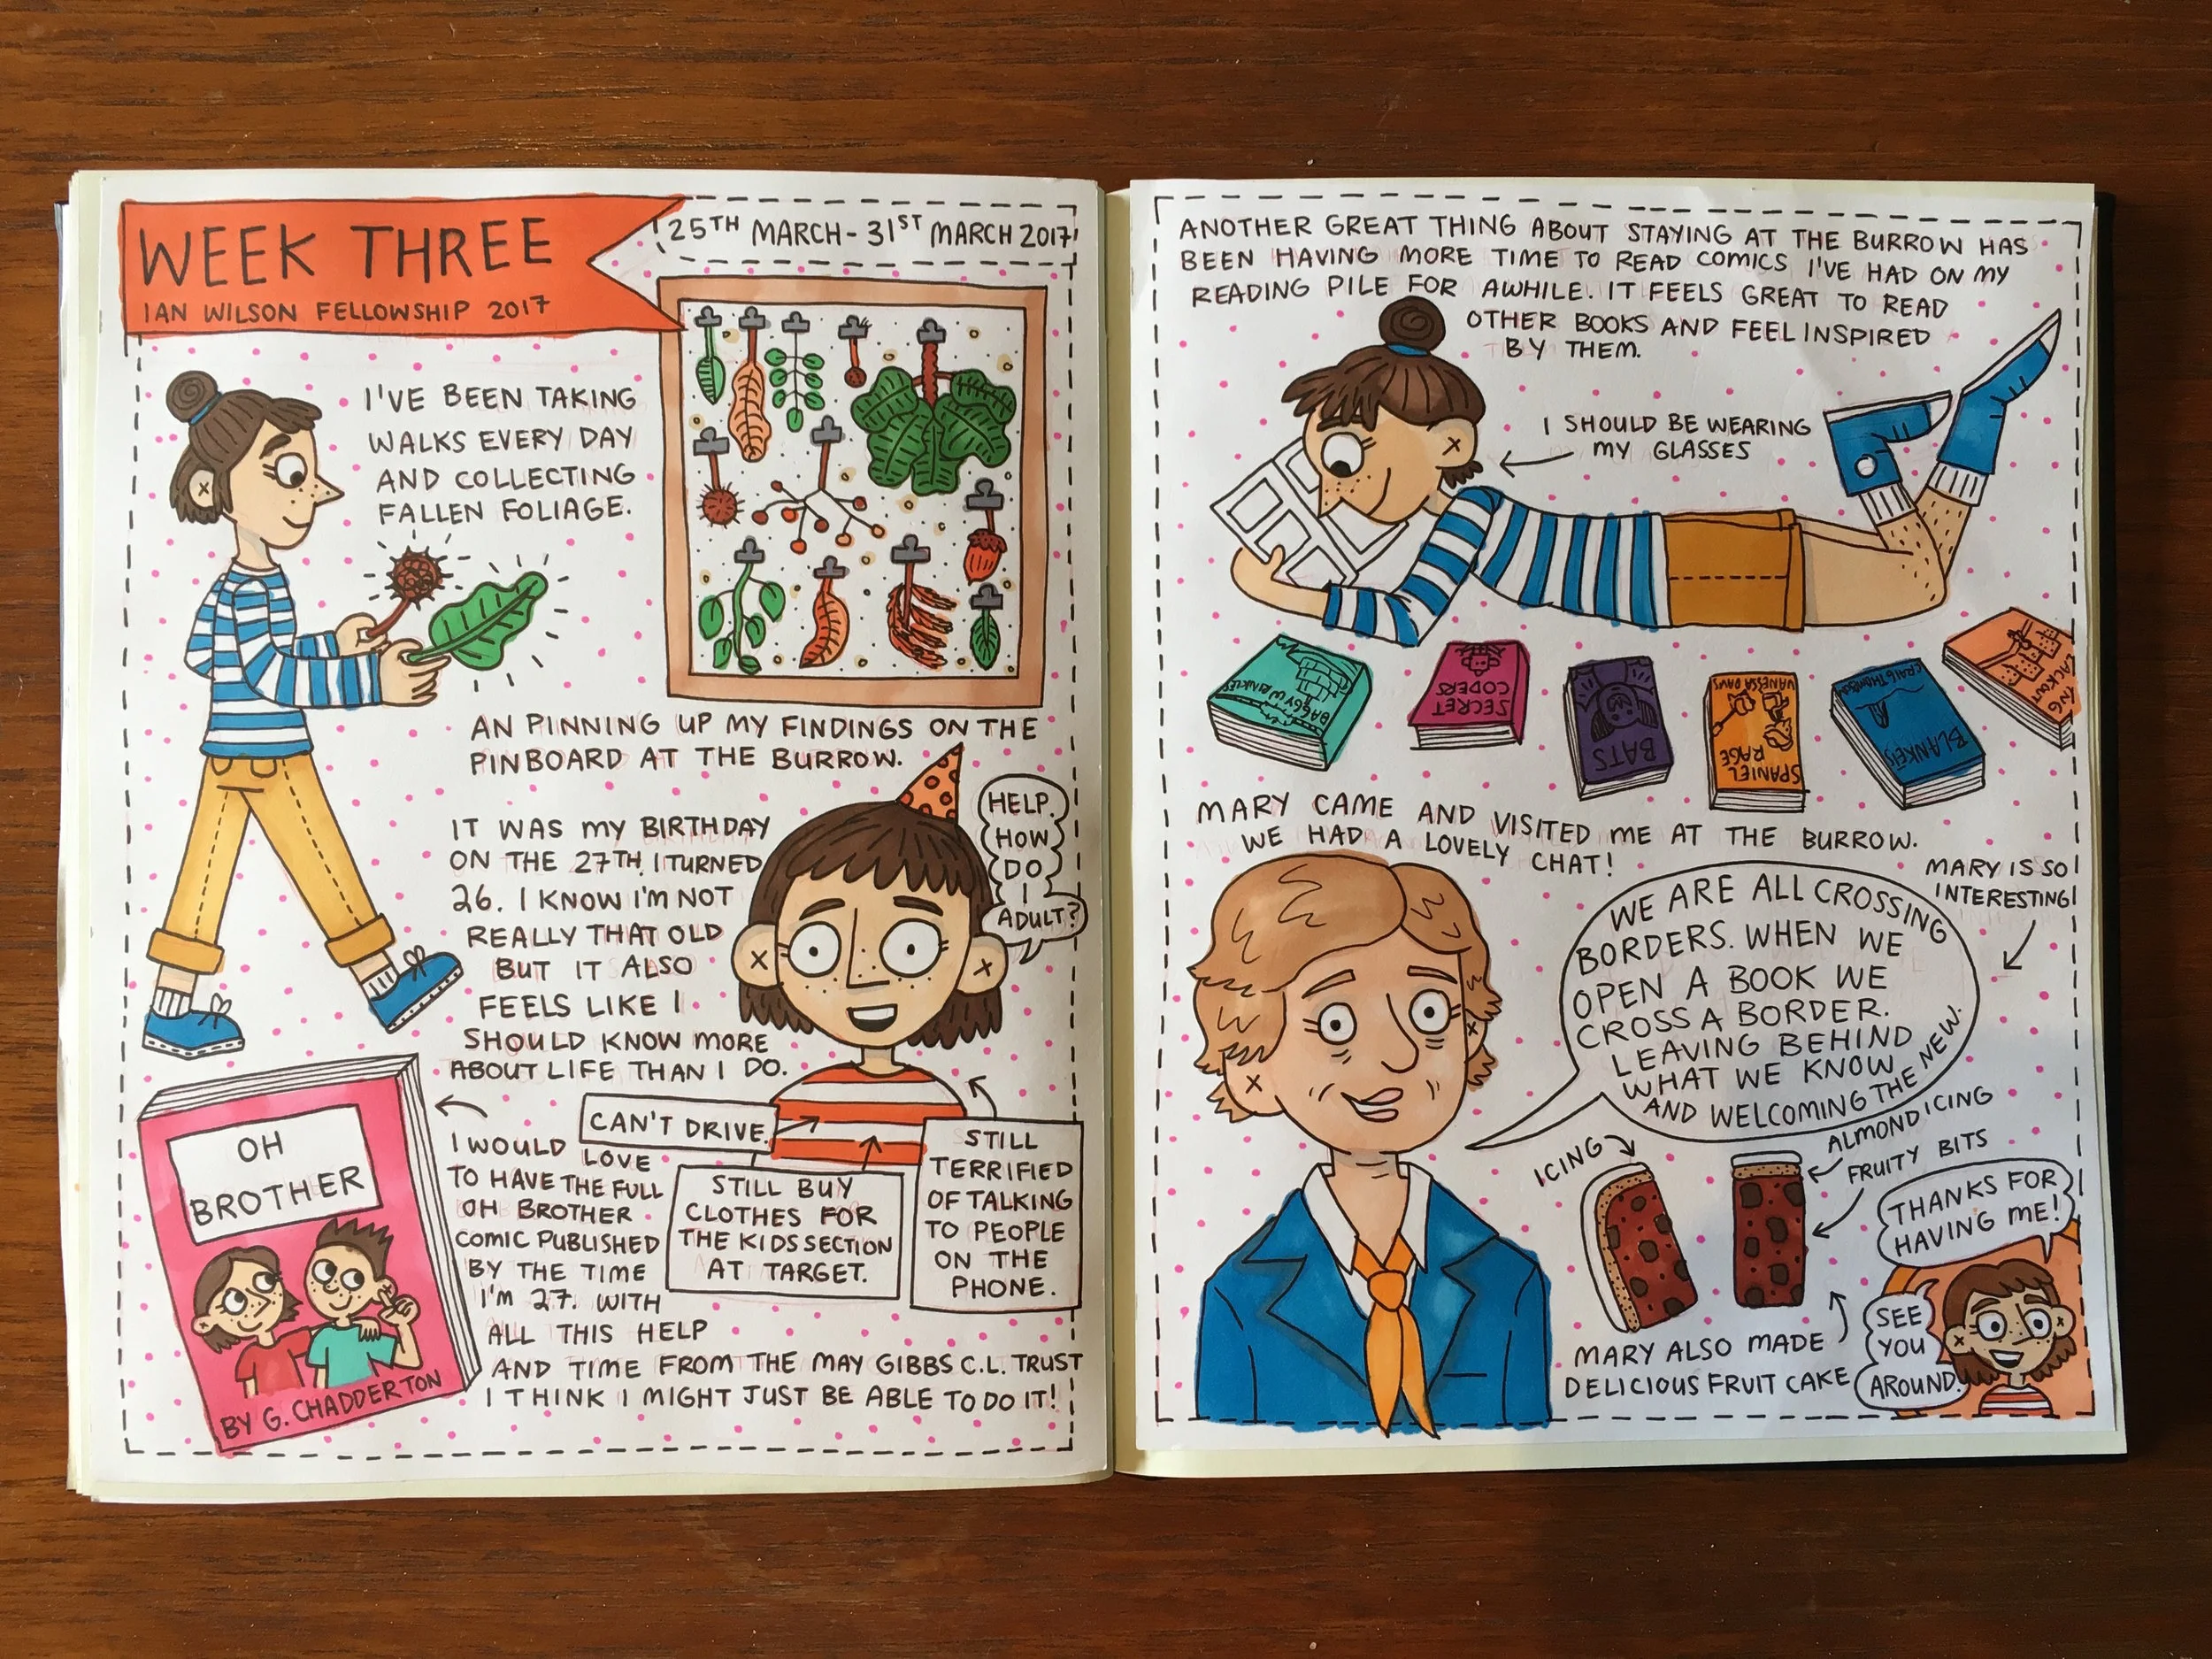 WEEK THREE
IAN WILSON FELLOWSHIP 2017
25TH MARCH - 31ST MARCH 2017
I'VE BEEN TAKING
WALKS EVERY DAY
AND COLLECTING
FALLEN FOLIAGE.
AN PINNING UP MY FINDINGS ON THE
PINBOARD AT THE BURROW.
IT WAS MY BIRTHDAY
ON THE 27TH. I TURNED
26. I KNOW I'M NOT
REALLY THAT OLD
BUT IT ALSO
FEELS LIKE I
SHOULD KNOW MORE
ABOUT LIFE THAN I DO.
HELP.
HOW
DO
I
ADULT?
CAN'T DRIVE.
STILL BUY
CLOTHES FOR
THE KIDS SECTION
AT TARGET.
STILL
TERRIFIED
OF TALKING
TO PEOPLE
ON THE
PHONE.
OH
BROTHER
BY G. CHADDERTON
I WOULD
LOVE
TO HAVE THE FULL
OH BROTHER
COMIC PUBLISHED
BY THE TIME
I'M 27. WITH
ALL THIS HELP
AND TIME FROM THE MAY GIBBS C.L. TRUST
I THINK I MIGHT JUST BE ABLE TO DO IT!
ANOTHER GREAT THING ABOUT STAYING AT THE BURROW HAS
BEEN HAVING MORE TIME TO READ COMICS I'VE HAD ON MY
READING PILE FOR AWHILE. IT FEELS GREAT TO READ
OTHER BOOKS AND FEEL INSPIRED
BY THEM.
I SHOULD BE WEARING
MY GLASSES
BAGGY WRINKLES
SECRET
CODERS
BATS
SPANIEL
RAGE
VANESSA DAVIS
BLANKETS
CRAIG THOMPSON
MARY CAME AND VISITED ME AT THE BURROW.
WE HAD A LOVELY CHAT!
MARY IS SO
INTERESTING!
WE ARE ALL CROSSING
BORDERS. WHEN WE
OPEN A BOOK WE
CROSS A BORDER.
LEAVING BEHIND
WHAT WE KNOW
AND WELCOMING THE NEW.
ICING
ALMOND ICING
FRUITY BITS
MARY ALSO MADE
DELICIOUS FRUIT CAKE
THANKS FOR
HAVING ME!
SEE
YOU
AROUND.